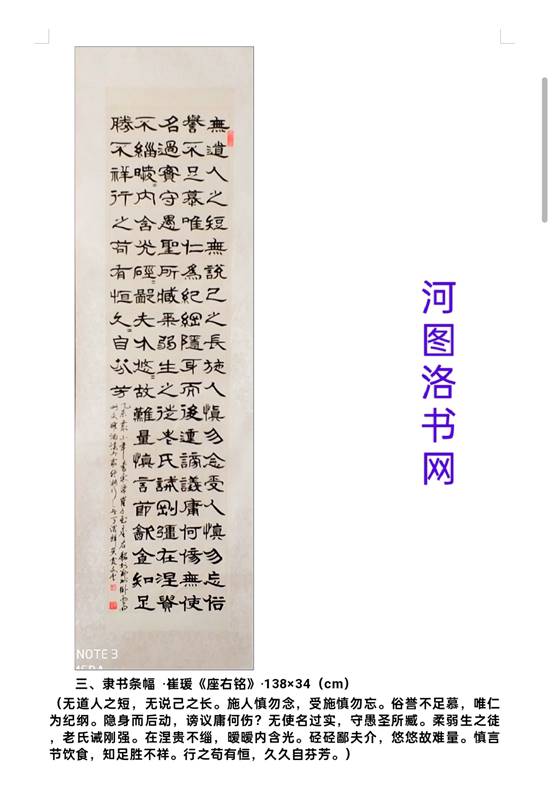 無道人之短無說己之長施人慎勿念受人慎勿忘俗
譽不足慕唯仁爲紀綱隱身而後動謗議庸何傷無使
名過實守愚聖所臧柔弱生之徒老氏誡剛彊在涅貴
不緇曖〻内含光硜〻鄙夫介悠〻故難量慎言節飲食知足
勝不祥行之苟有恒久〻自芬芳
河图洛书网
NOTE 3
三、隶书条幅 ·崔瑗《座右铭》·138×34（cm）
（无道人之短，无说己之长。施人慎勿念，受施慎勿忘。俗誉不足慕，唯仁
为纪纲。隐身而后动，谤议庸何伤？无使名过实，守愚圣所臧。柔弱生之徒
，老氏诫刚强。在涅贵不缁，暧暧内含光。硁硁鄙夫介，悠悠故难量。慎言
节饮食，知足胜不祥。行之苟有恒，久久自芬芳。）